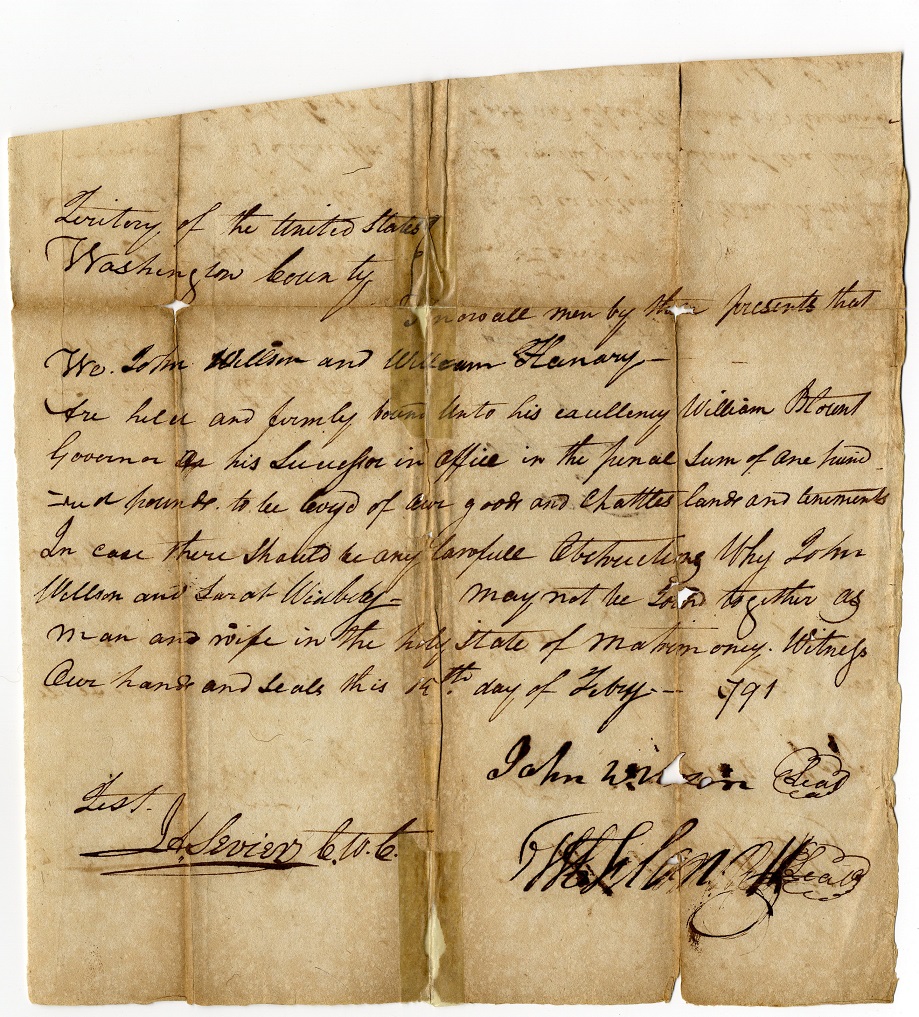 Teritory of the United States
Washington County
Know all men by these presents that
We. John Willson and William Hanary
Are held and firmly bound Unto his excellency William Blount
Governor & his Successor in Office in the penal Sum of One hund
-red pounds. to be levyd of Our goods and Chattles lands and tenements
In case there Should be any lawfull Obstructing Why John
Willson and Sarah may not be Joind together as
man and wife in the holy State of Matrimoney. Witness
Our hands and Seals this day of Febry 791
John Willson Seal
Test.
JA. Sevier C.W.C.
Wm Hanary Seal